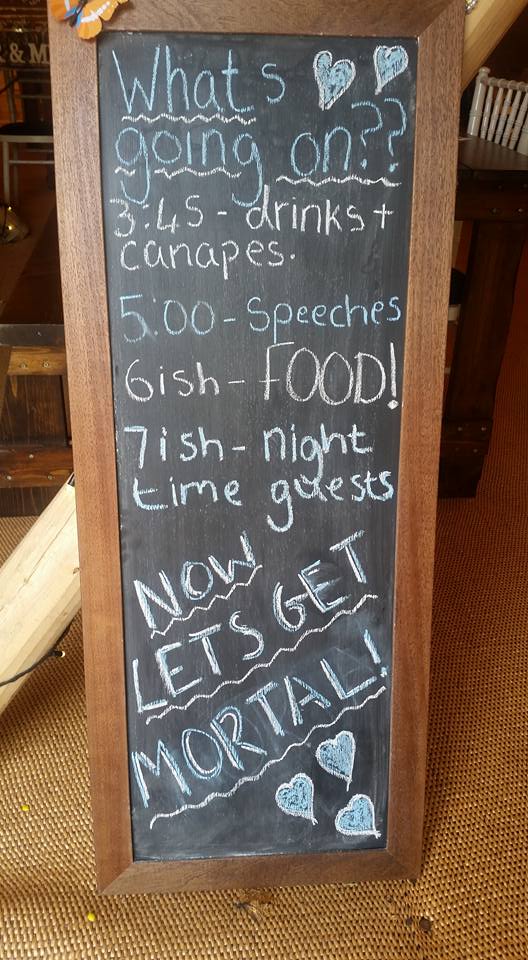 & M
Whats
going on??
3:45 - drinks +
canapes.
5:00 - Speeches
6ish - FOOD!
7ish - night
time guests
NOW
LETS GET
MORTAL!